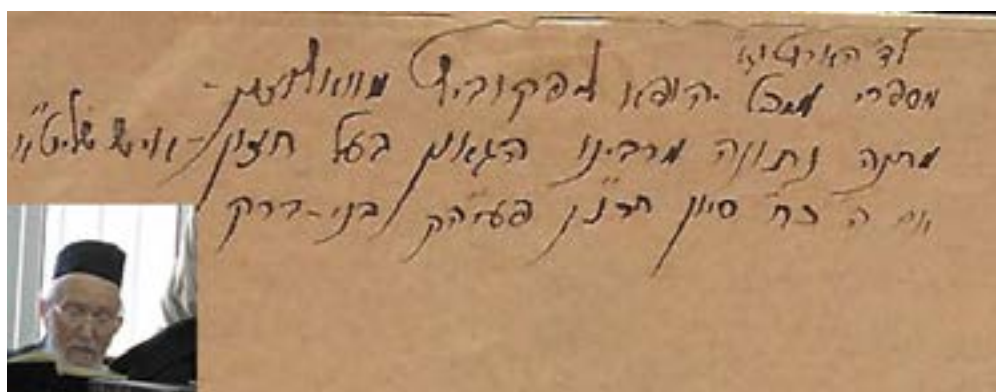 לד' הארץ
מספרי מיכל יהודא לפקוביץ מוואלוזין -
מתנה נתונה מרבינו הגאון בעל חזון - איש שליט"א
יום ה' כח' סיון תרצ"ן פעיה"ק בני-ברק